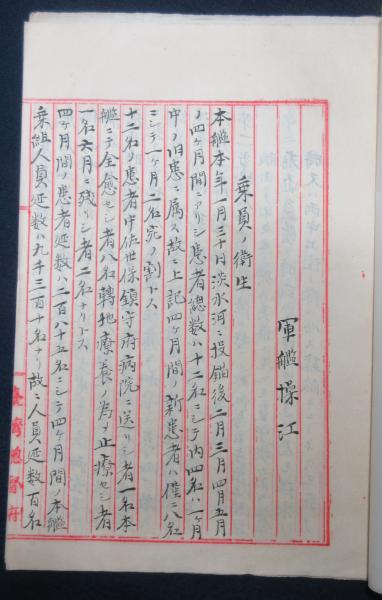 軍艦操江
乗員ノ衛生
本艦本年一月三十日淡水河ニ投錨後二月三月四月五月
ノ四ヶ月間ニアリシ患者総数ハ十二名ニシテ内四名ハ一月
中ノ旧患ニ属ス故ニ上記四ヶ月間ノ新患者ハ僅ニ八名
ニシテ一ヶ月二名宛ノ割トス
十二名ノ患者中佐世保鎮守府病院ニ送リシ者一名本
艦ニテ全愈セシ者八名轉地療養ノ為メ止療セシ者
一名六月ニ残リシ者二名ナリトス
四ヶ月間ノ患者延数ハ二百八十五名ニシテ四ヶ月間ノ本艦
乗組人員延数ハ九千三百十名ナリ故ニ人員延数百名
臺灣總督府